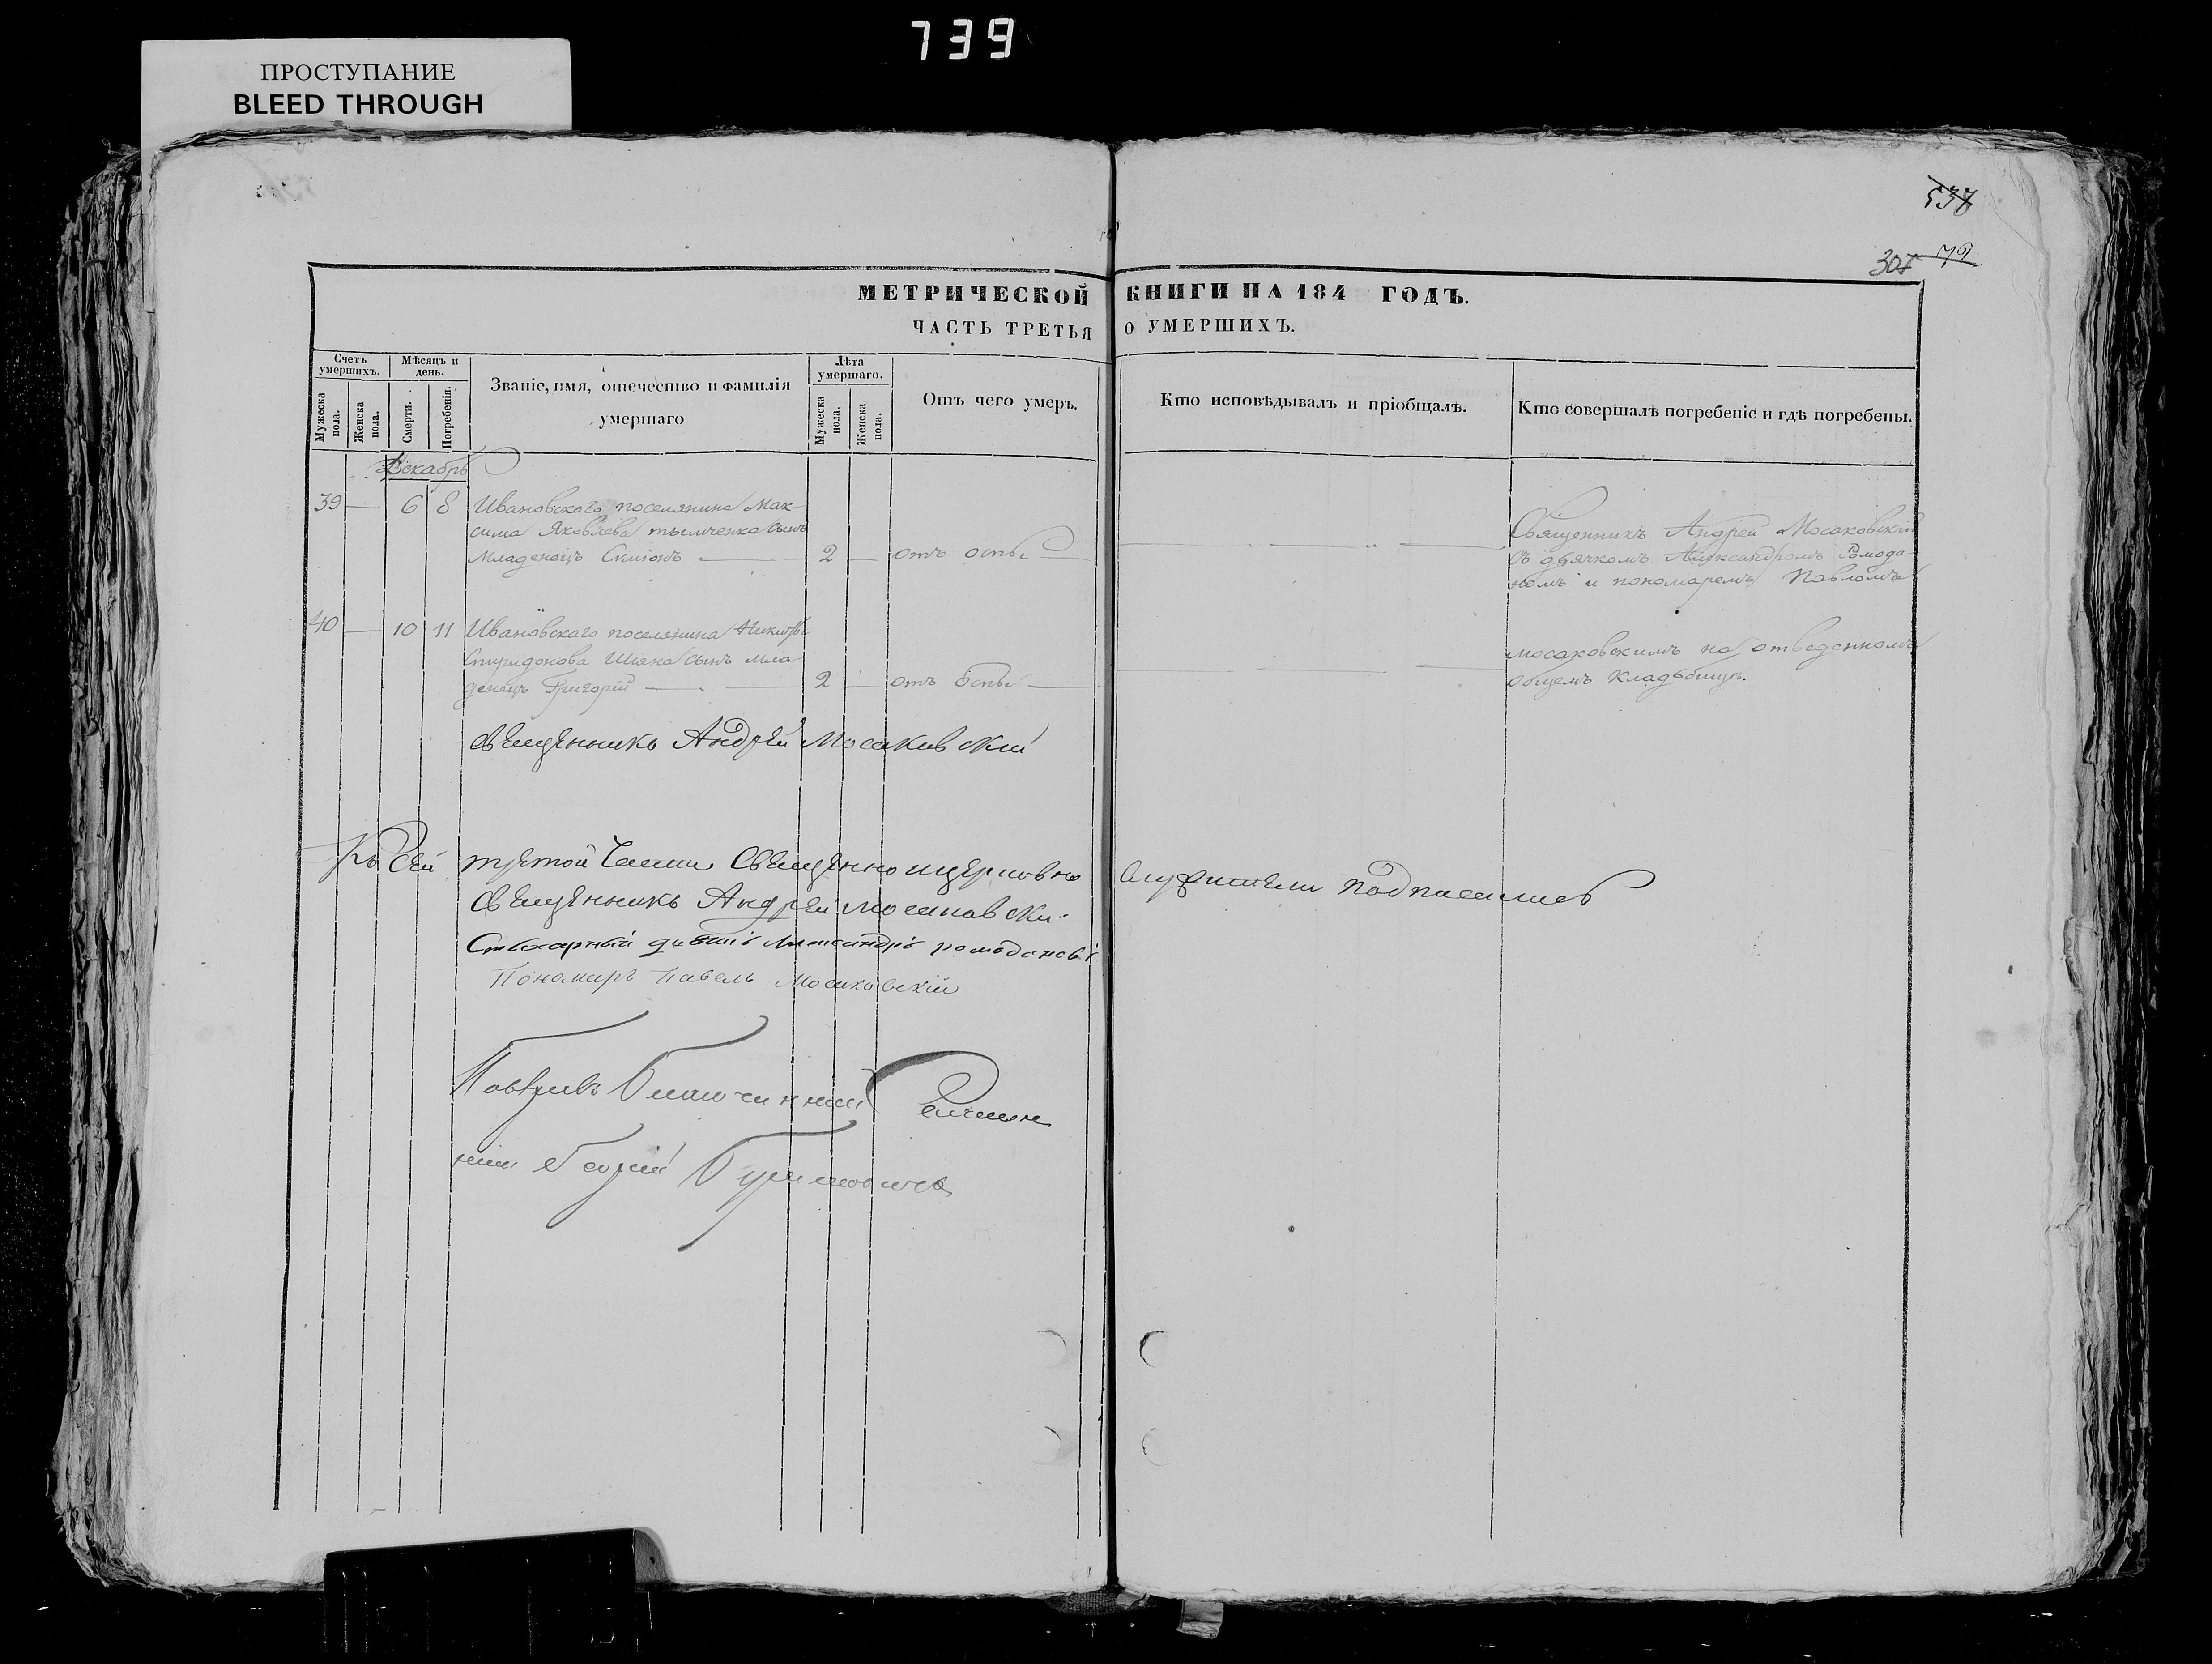 739
ПРОСТУПАНИЕ
BLEED THROUGH
537
307
МЕТРИЧЕСКОЙ КНИГИ НА 184 ГОДЪ.
ЧАСТЬ ТРЕТЬЯ О УМЕРШИХЪ.
Счетъ умершихъ.
Мужеска пола.
Женска пола.
Мѣсяцъ и день.
Смерти.
Погребенія.
Званіе, имя, отечество и Фамилія умершаго
Лѣта умершаго.
Мужеска пола.
Женска пола.
Отъ чего умеръ.
Кто исповѣдывалъ и пріобщалъ.
Кто совершалъ погребеніе и гдѣ погребены.
Декабрь
39 — 6 8 Ивановскаго поселянина Мак-
сима Яковлева сынъ
Младенецъ Симіонъ — 2 — отъ оспы
Священникъ Андрей Мосаковскій
съ дьячкомъ Александромъ Ромода
номъ и пономаремъ Павломъ
40 — 10 11 Ивановскаго поселянина Никиты
Спиридонова сынъ мла-
денецъ Григорій — 2 — отъ оспы —
Мосаковскимъ на отведенномъ
общемъ кладбищѣ.
Священникъ Андрей Мосаковский
Къ сей третой части Священно и церковно служители подписались
Священникъ Андрей Мосаковский
Стихарный Александръ
Пономарь Павелъ Мосаковскій
Благочинный